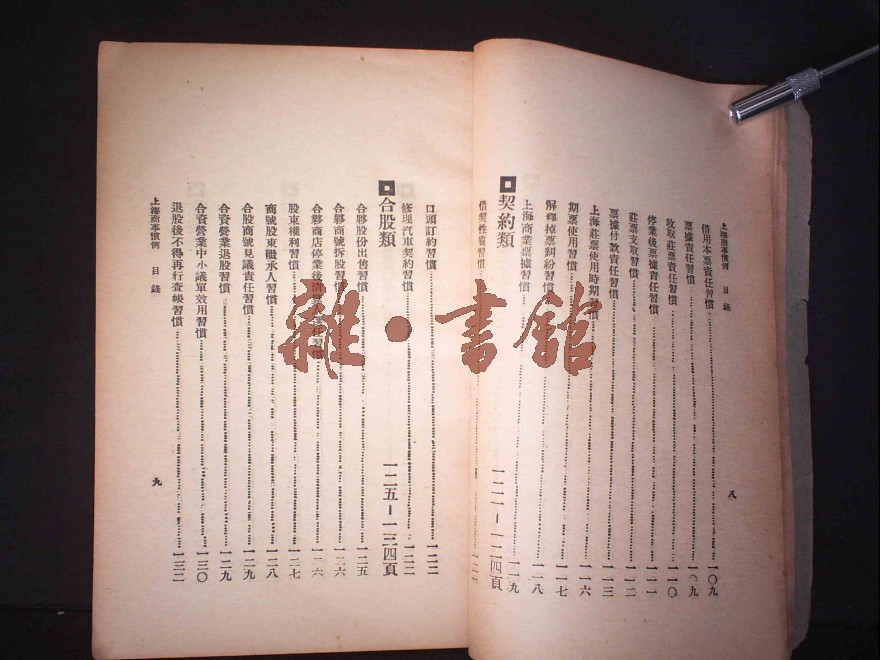 上海商事慣例 目錄
借用本票責任習慣 一〇九
票據責任習慣 一〇九
收取莊票責任習慣 一一〇
停業後票據責任習慣 一一一
莊票支取習慣 一一二
票據付款責任習慣 一一三
上海莊票使用時期習慣 一一四
期票使用習慣 一一六
解釋掉票糾紛習慣 一一七
上海商業票據習慣 一一八
契約類 一二一-一二四頁
借契性質習慣
八
口頭訂約習慣 一二二
修理汽車契約習慣 一二三
合股類 一二五-一三四頁
合夥股份出售習慣 一二五
合夥商號拆股習慣 一二六
合夥商店停業後清算人責任習慣 一二六
股東權利習慣 一二七
商號股東繼承人習慣 一二八
合股商號見議責任習慣 一二九
合資營業退股習慣 一二九
合資營業中小議單效用習慣 一三〇
退股後不得再行查帳習慣 一三二
上海商事慣例 目錄
九
雜·書館